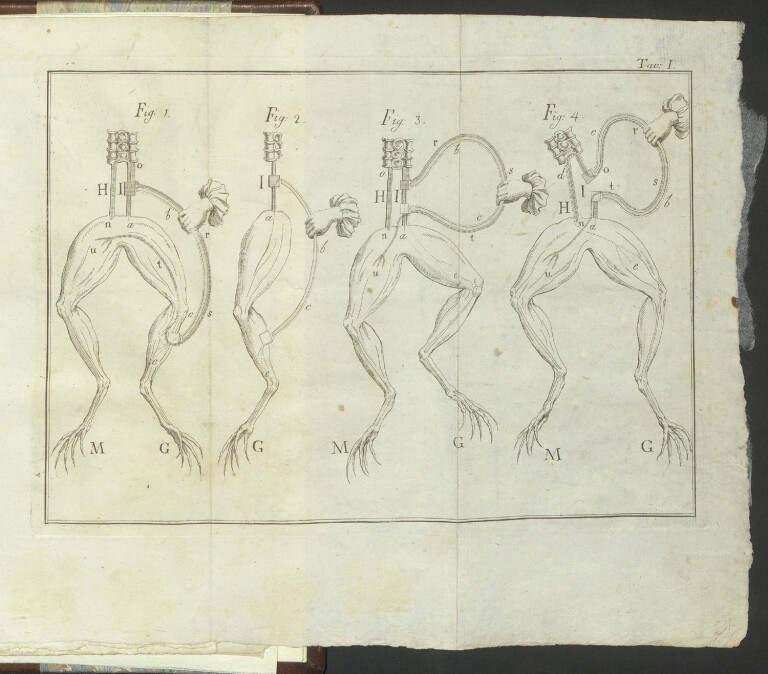 Tav: I.
Fig. 1.
Fig. 2.
Fig. 3.
Fig. 4.
o
H I
b
r
n a
u
t
c s
e
M G
I
a
b
c
G
r
b
s
o
H I
c
t
n a
u
e
M G
c
r
d
o
I
t
s
b
H
n a
u
e
M G